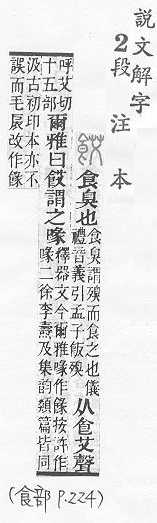 說文解字
2段注本
餀
食臭也
食臭謂殠而食之也儀
禮音義引孟子飯殠
从食艾聲
呼艾切
十五部
爾雅曰餀謂之喙
釋器文今爾雅喙作餯按許作
喙二徐李燾及集韵類篇皆同
汲古初印本亦不
誤而毛扆改作餯
(食部 P.224)